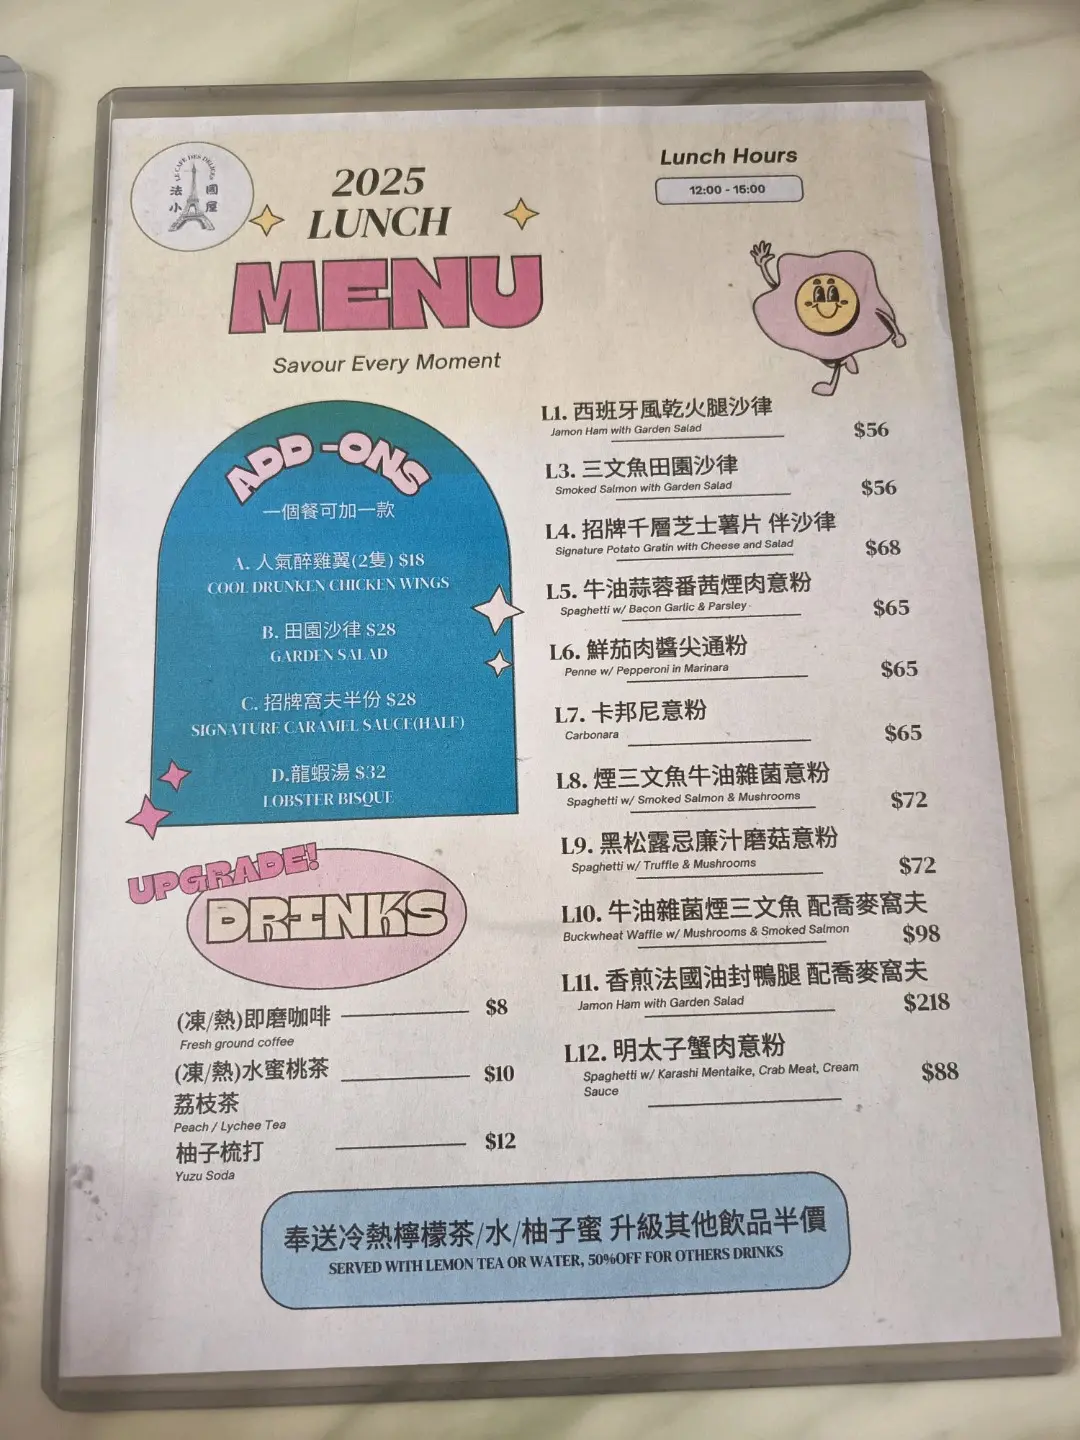 LE CAFE DES DELICES
法國
小屋
2025
LUNCH
MENU
Savour Every Moment
Lunch Hours
12:00 - 15:00
ADD-ONS
一個餐可加一款
A. 人氣醉雞翼(2隻) $18
COOL DRUNKEN CHICKEN WINGS
B. 田園沙律 $28
GARDEN SALAD
C. 招牌窩夫半份 $28
SIGNATURE CARAMEL SAUCE(HALF)
D.龍蝦湯 $32
LOBSTER BISQUE
UPGRADE!
DRINKS
(凍/熱)即磨咖啡 $8
Fresh ground coffee
(凍/熱)水蜜桃茶 $10
荔枝茶
Peach / Lychee Tea
柚子梳打 $12
Yuzu Soda
L1. 西班牙風乾火腿沙律
Jamon Ham with Garden Salad $56
L3. 三文魚田園沙律
Smoked Salmon with Garden Salad $56
L4. 招牌千層芝士薯片 伴沙律
Signature Potato Gratin with Cheese and Salad $68
L5. 牛油蒜蓉番茜煙肉意粉
Spaghetti w/ Bacon Garlic & Parsley $65
L6. 鮮茄肉醬尖通粉
Penne w/ Pepperoni in Marinara $65
L7. 卡邦尼意粉
Carbonara $65
L8. 煙三文魚牛油雜菌意粉
Spaghetti w/ Smoked Salmon & Mushrooms $72
L9. 黑松露忌廉汁磨菇意粉
Spaghetti w/ Truffle & Mushrooms $72
L10. 牛油雜菌煙三文魚 配喬麥窩夫
Buckwheat Waffle w/ Mushrooms & Smoked Salmon $98
L11. 香煎法國油封鴨腿 配喬麥窩夫
Jamon Ham with Garden Salad $218
L12. 明太子蟹肉意粉
Spaghetti w/ Karashi Mentaike, Crab Meat, Cream $88
Sauce
奉送冷熱檸檬茶/水/柚子蜜 升級其他飲品半價
SERVED WITH LEMON TEA OR WATER, 50%OFF FOR OTHERS DRINKS